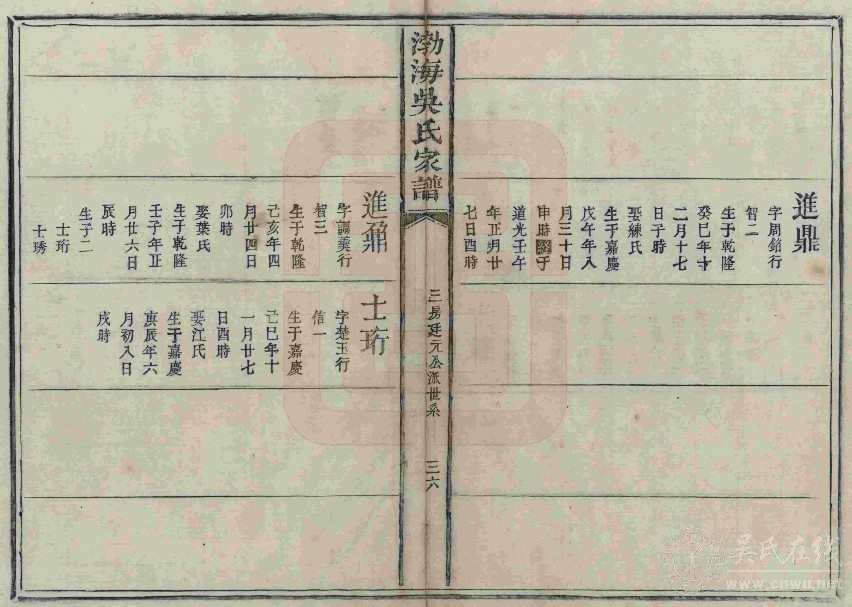 進鼎
字周銘行
智二
生于乾隆
癸巳年十
二月十七
日子時
娶練氏
生于嘉慶
戊午年八
月三十日
申時終于
道光壬午
年正月廿
七日酉時
渤海吳氏家譜
三易廷元公派世系
三六
進鼐
字調羹行
智三
生于乾隆
己亥年四
月廿四日
卯時
娶葉氏
生于乾隆
壬子年正
月廿六日
辰時
生子二
士珩
士琇
士珩
字楚玉行
信一
生于嘉慶
己巳年十
一月廿七
日酉時
娶江氏
生于嘉慶
庚辰年六
月初八日
戌時
吴氏在线
www.cnwu.net